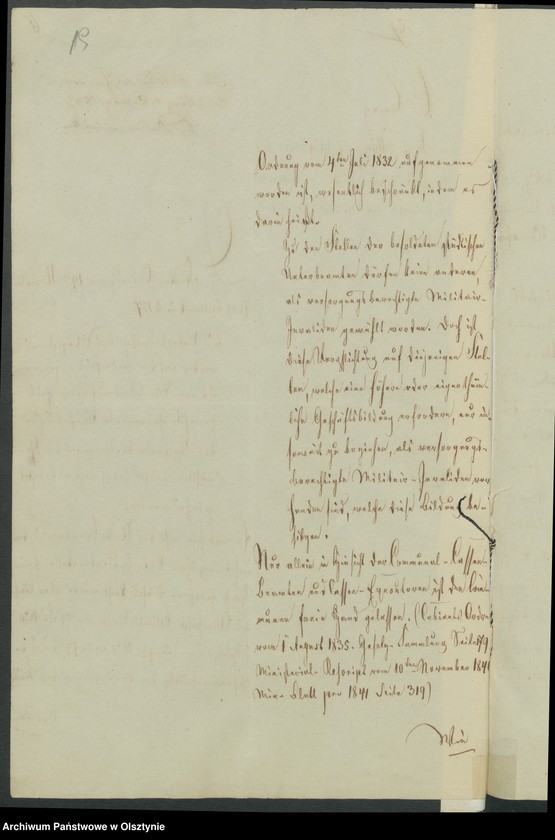 Ordnung vom 4ten Juli 1832 aufgenommen
worden ist, wesentlich beschränkt, indem es
darin heißt.
Zu den Stellen der besoldeten städtischen
Unterbeamten dürfen keine anderen,
als versorgungsberechtigte Militair-
Invaliden gewählt werden. Doch ist
diese Verpflichtung auf diejenigen Stel-
len, welche eine höhere oder eigenthüm-
liche Geschäftsbildung erfordern, nur in
soweit zu beziehen, als versorgungs-
berechtigte Militair-Invaliden vor
handen sind, welche diese Bildung be-
sitzen.
Nur allein in Hinsicht der Communal-Cassen-
Beamten und Cassen-Executoren ist den Com-
munen freie Hand gelassen. (Cabinets Ordre
vom 1 August 1835. Gesetz-Sammlung Seite
Ministerial-Rescript vom 10ten November 1841
Min-Blatt pro 1841 Seite 319)
Archiwum Państwowe w Olsztynie